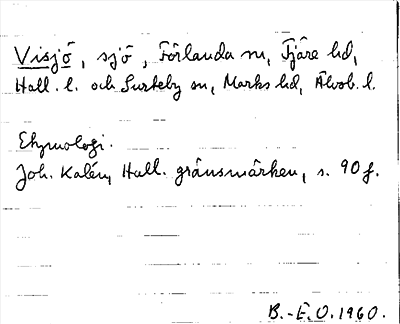 Visjö, sjö, Förlanda sn, Fjäre hd,
Hall. l. och Surteby sn, Marks hd, Älvsb. l.
Etymologi.
Joh. Kalén, Hall. gränsmärken, s. 90 f.
B.-E.O. 1960.